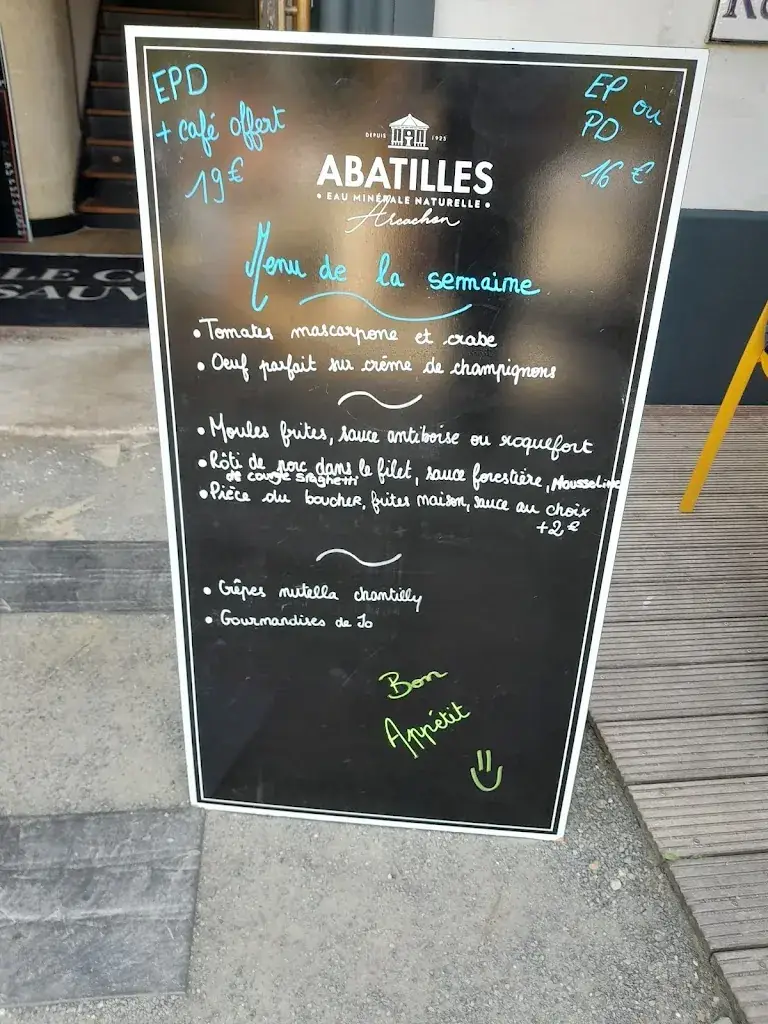 EPD
+ café offert
19€
EP ou
PD
16 €
DEPUIS 1925
ABATILLES
• EAU MINÉRALE NATURELLE •
Arcachon
Menu de la semaine
• Tomates mascarpone et crabe
• Oeuf parfait sur crème de champignons
• Moules frites, sauce antiboise ou roquefort
• Rôti de porc dans le filet, sauce forestière, Mousseline
de courge spaghetti
• Pièce du boucher, frites maison, sauce au choix
+2 €
• Crêpes nutella chantilly
• Gourmandises de Jo
Bon
Appétit
LE CO
SAUV